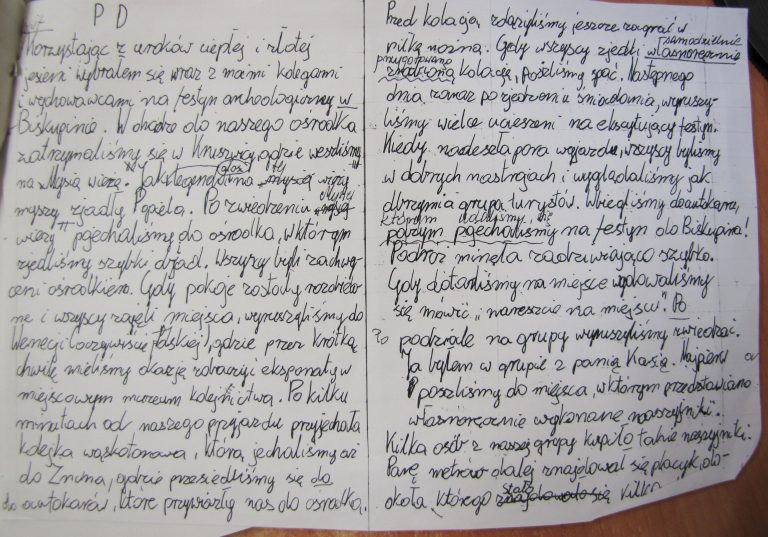 P D
Korzystając z uroków ciepłej i złotej
jesieni wybrałem się wraz z moimi kolegami
i wychowawcami na festyn archeologiczny w
Biskupinie. W drodze do naszego ośrodka
zatrzymaliśmy się w Kruszwicy, gdzie weszliśmy
na „Mysią wieżę". Jak głosi legenda, na tej wieży
myszy zjadły Popiela. Po zwiedzeniu „Mysiej
wieży" pojechaliśmy do ośrodka, w którym
zjedliśmy szybki obiad. Wszyscy byli zachwy-
ceni ośrodkiem. Gdy pokoje zostały rozdzielo-
ne i wszyscy zajęli miejsca, wyruszyliśmy do
Wenecji (oczywiście Polskiej), gdzie przez krótką
chwilę mieliśmy okazję zobaczyć eksponaty w
miejscowym muzeum kolejnictwa. Po kilku
minutach od naszego przyjazdu przyjechała
kolejka wąskotorowa, którą jechaliśmy aż
do Żnina, gdzie przesiedliśmy się do
do autokarów, które przywiozły nas do ośrodka.
Przed kolacją zdążyliśmy jeszcze zagrać w
piłkę nożną. Gdy wszyscy zjedli własnoręcznie samodzielnie
przygotowaną zrobioną kolację, poszliśmy spać. Następnego
dnia zaraz po zjedzeniu śniadania, wyruszy-
liśmy wielce ucieszeni na ekscytujący festyn.
Kiedy nadeszła pora wyjazdu, wszyscy byliśmy
w dobrych nastrojach i wyglądaliśmy jak
olbrzymia grupa turystów. Wbiegliśmy do autokaru,
którym udaliśmy się
po czym pojechaliśmy na festyn do Biskupina!
Podróż minęła zadziwiająco szybko.
Gdy dotarliśmy na miejsce wydawaliśmy
się mówić „nareszcie na miejscu". Po
Po podziale na grupy wyruszyliśmy zwiedzać.
Ja byłem w grupie z panią Kasią. Najpierw
poszliśmy do miejsca, w którym przedstawiano
własnoręcznie wykonane naszyjniki.
Kilka osób z naszej grupy kupiło takie naszyjniki.
Parę metrów dalej znajdował się placyk, do-
okoła, którego stało znajdowało się kilka